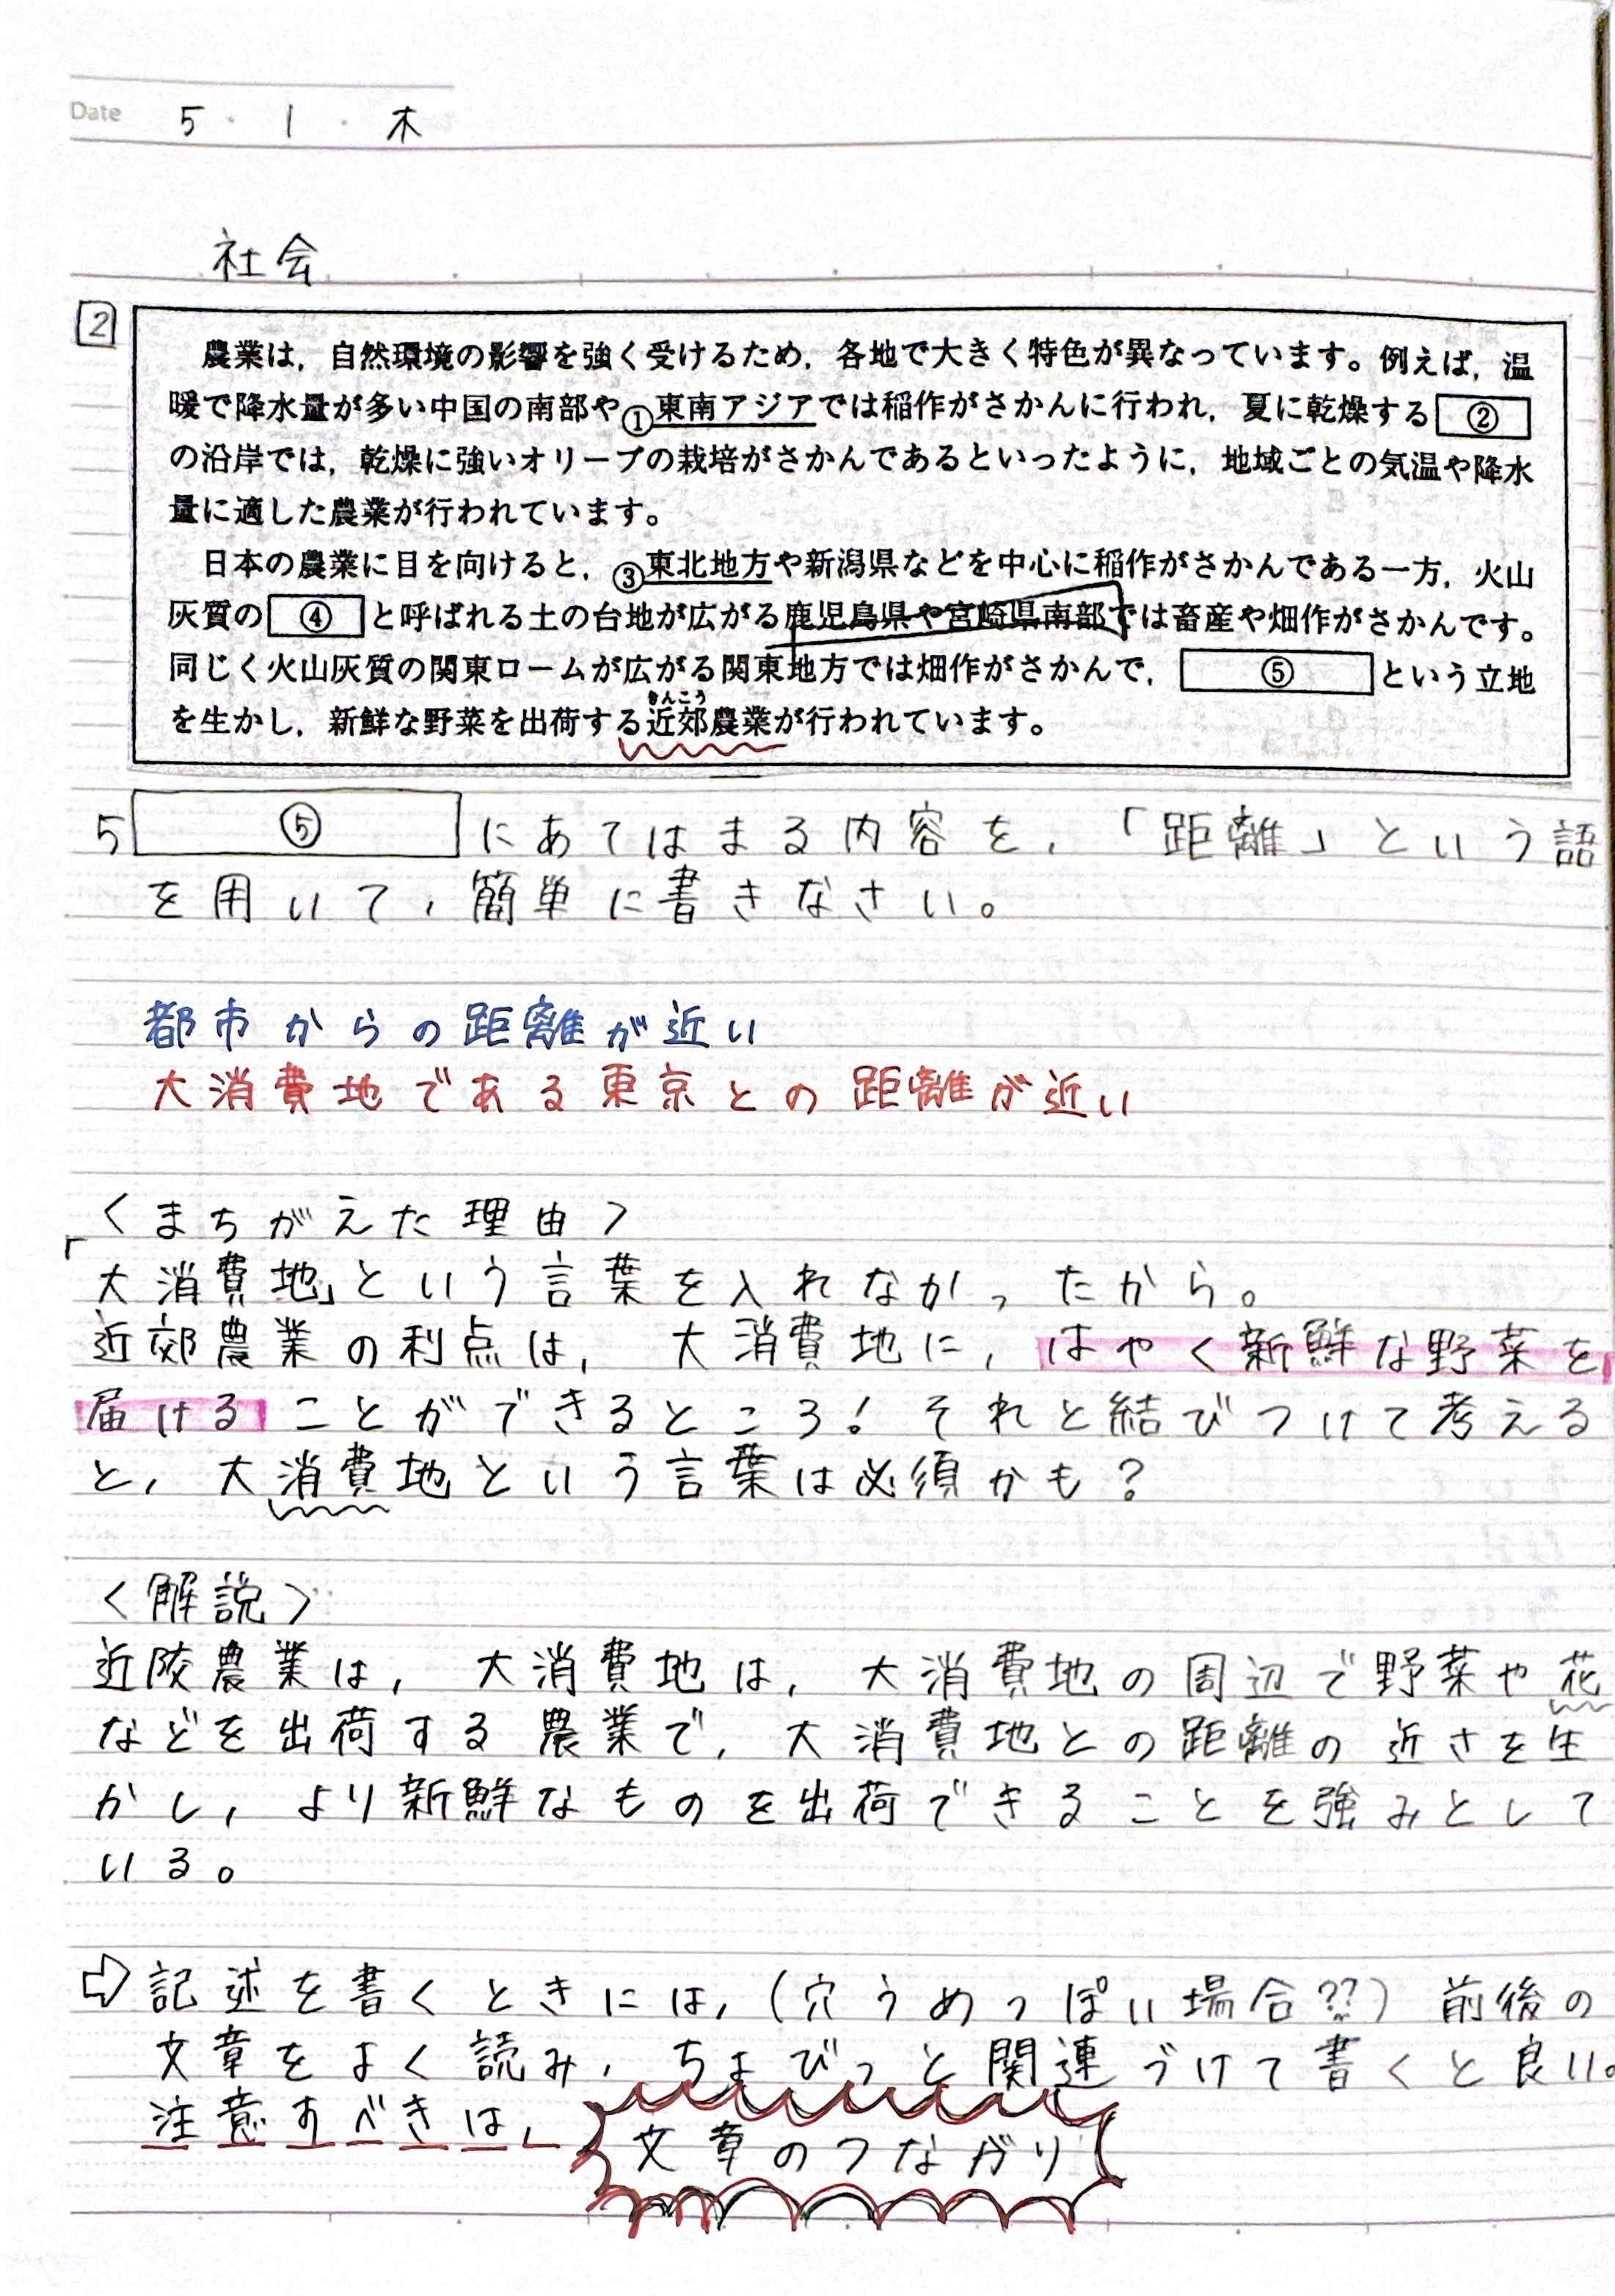 Date 5・1・木
社会
2
農業は，自然環境の影響を強く受けるため，各地で大きく特色が異なっています。例えば，温
暖で降水量が多い中国の南部や①東南アジアでは稲作がさかんに行われ，夏に乾燥する②
の沿岸では，乾燥に強いオリーブの栽培がさかんであるといったように，地域ごとの気温や降水
量に適した農業が行われています。
日本の農業に目を向けると，③東北地方や新潟県などを中心に稲作がさかんである一方，火山
灰質の④と呼ばれる土の台地が広がる鹿児島県や宮崎県南部では畜産や畑作がさかんです。
同じく火山灰質の関東ロームが広がる関東地方では畑作がさかんで，⑤という立地
きんこう
を生かし，新鮮な野菜を出荷する近郊農業が行われています。
5 ⑤にあてはまる内容を，「距離」という語
を用いて，簡単に書きなさい。
都市からの距離が近い
大消費地である東京との距離が近い
〈まちがえた理由〉
「大消費地」という言葉を入れなかったから。
近郊農業の利点は，大消費地に，はやく新鮮な野菜を
届けることができるところ！それと結びつけて考える
と，大消費地という言葉は必須かも？
〈解説〉
近郊農業は，大消費地は，大消費地の周辺で野菜や花
などを出荷する農業で，大消費地との距離の近さを生
かし，より新鮮なものを出荷できることを強みとして
いる。
⇨記述を書くときには，(穴うめっぽい場合??)前後の
文章をよく読み，ちょびっと関連づけて書くと良い。
注意すべきは，文章のつながり